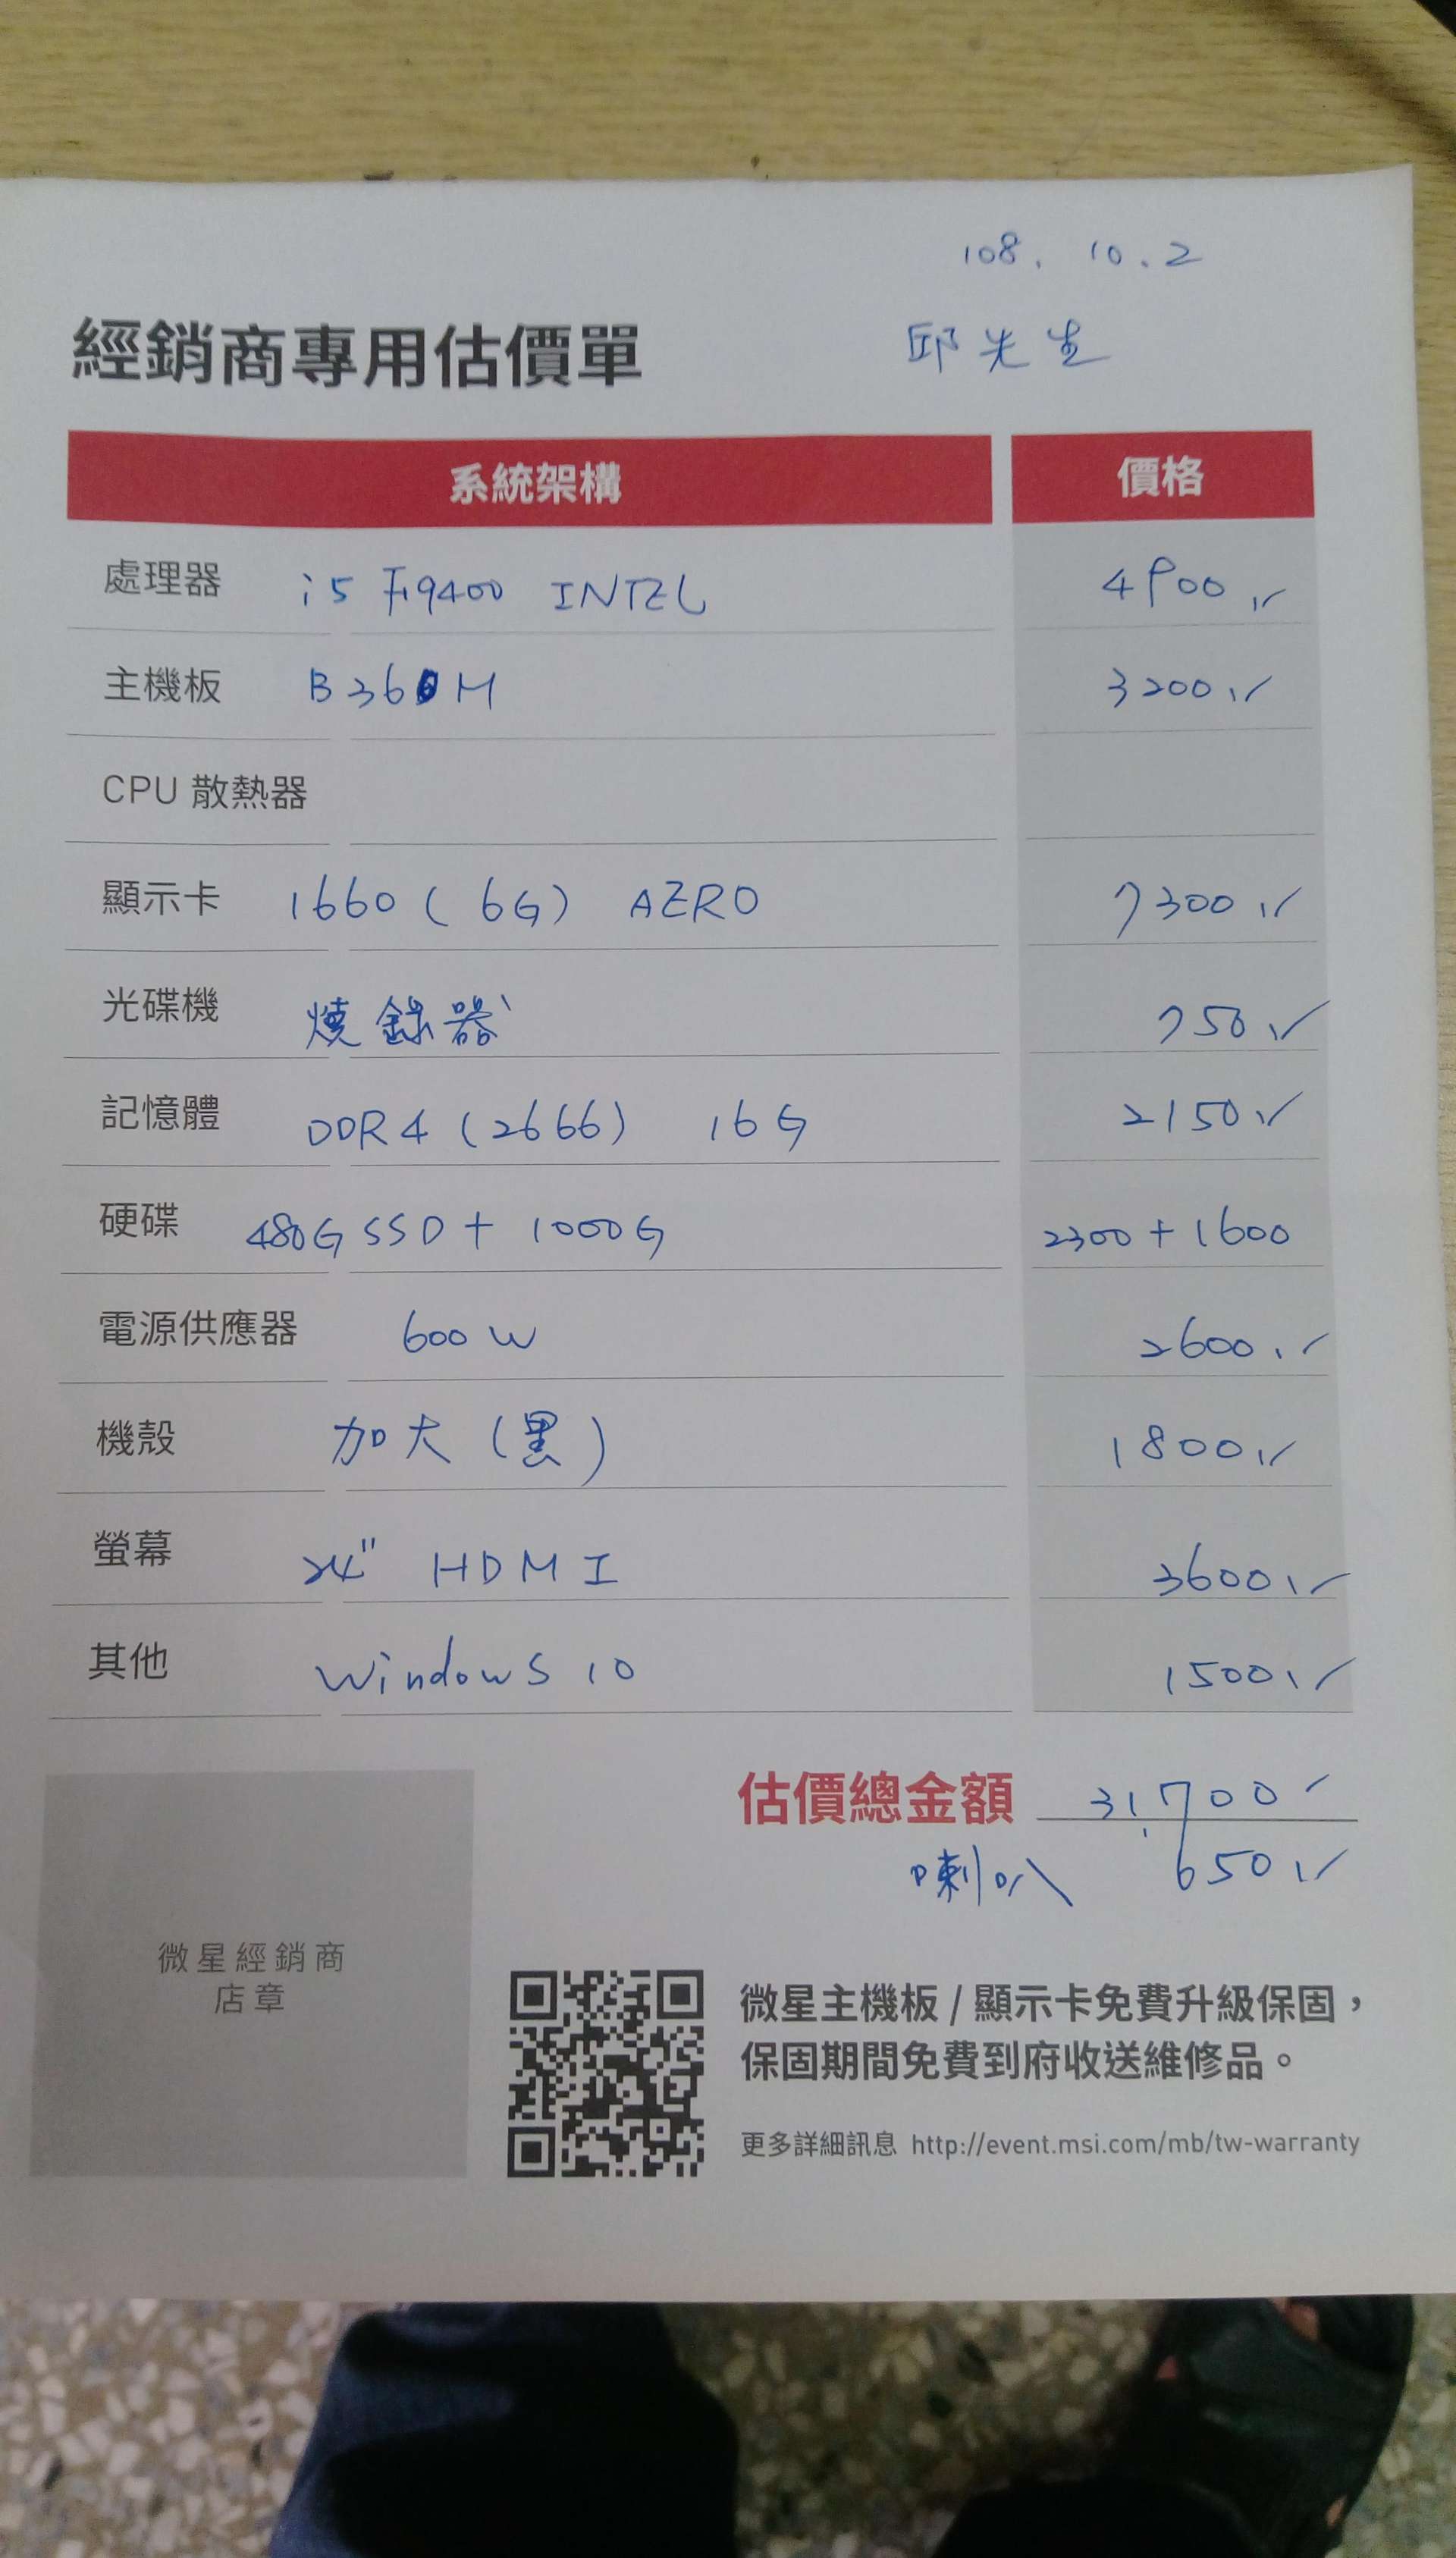 108. 10. 2
經銷商專用估價單 邱先生
系統架構 價格
處理器 i5 9400 INTEL 4900
主機板 B360M 3200
CPU 散熱器
顯示卡 1660 (6G) AERO 7300
光碟機 燒錄器 750
記憶體 DDR4 (2666) 16G 2150
硬碟 480G SSD + 1000G 2300 + 1600
電源供應器 600W 2600
機殼 加大 (黑) 1800
螢幕 24" HDMI 3600
其他 Windows 10 1500
估價總金額 31,700
喇叭 650
微星經銷商
店章
微星主機板 / 顯示卡免費升級保固，
保固期間免費到府收送維修品。
更多詳細訊息 http://event.msi.com/mb/tw-warranty